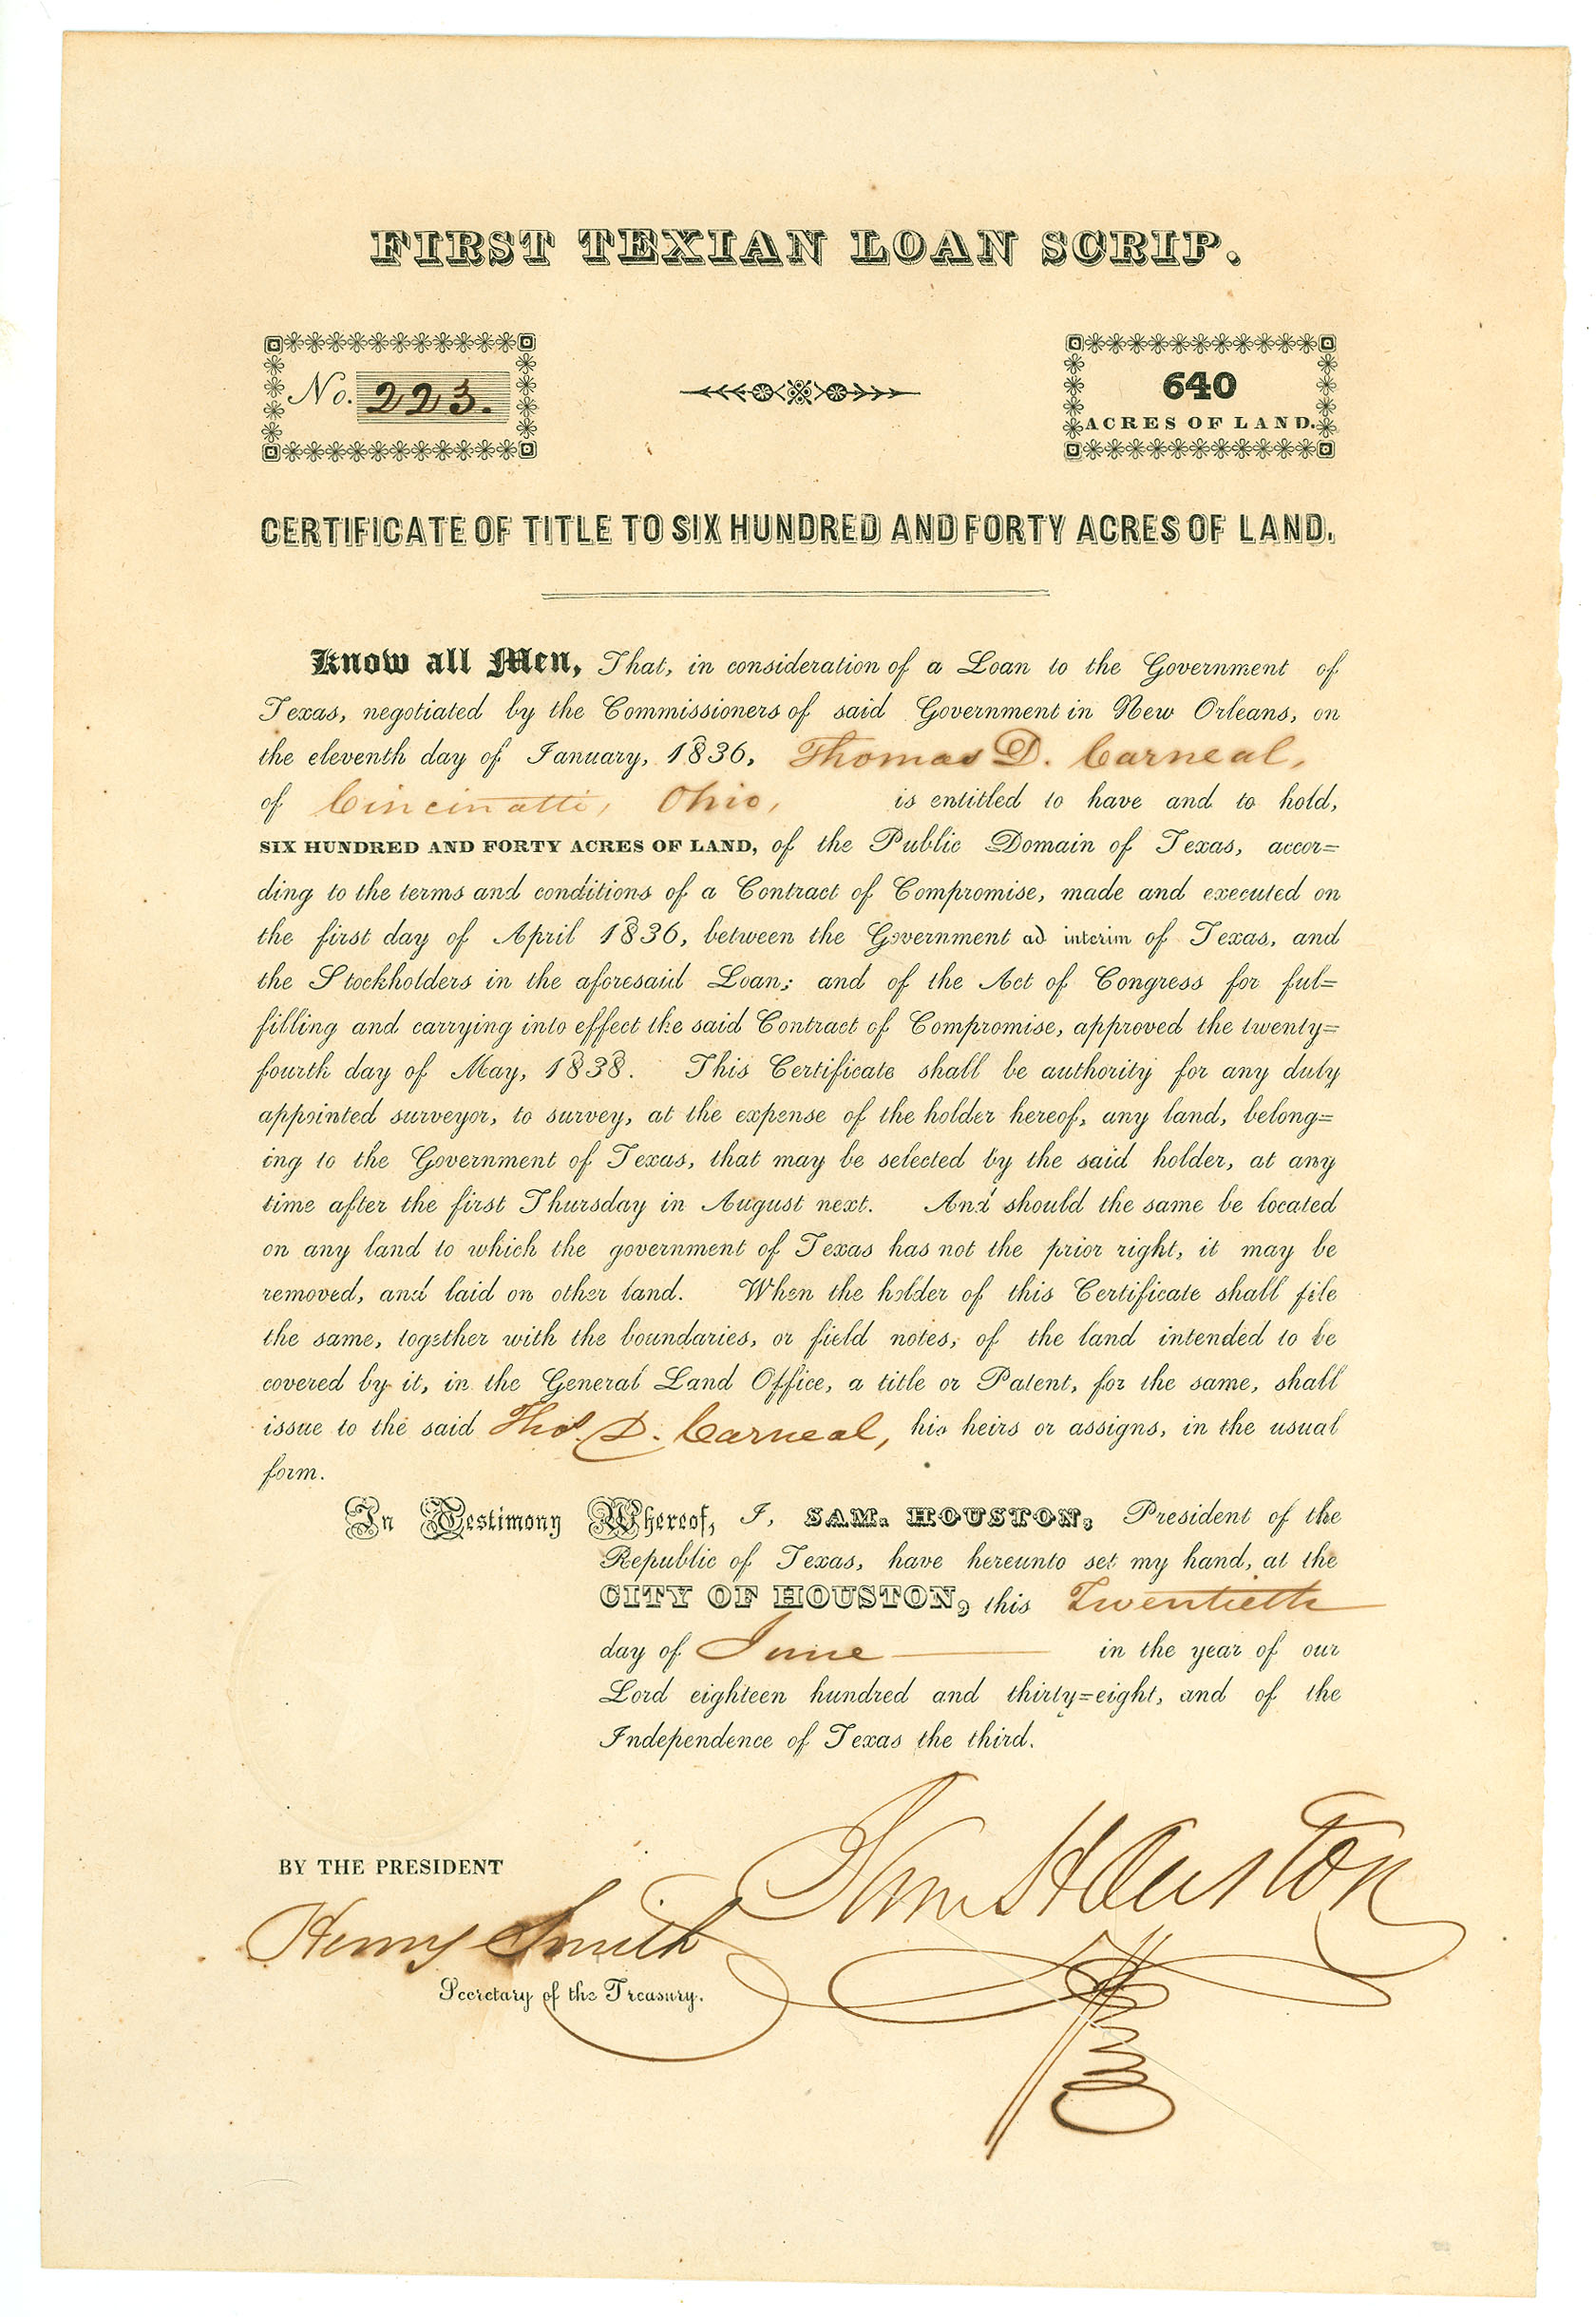 FIRST TEXIAN LOAN SCRIP.
No. 223.
640
ACRES OF LAND.
CERTIFICATE OF TITLE TO SIX HUNDRED AND FORTY ACRES OF LAND.
Know all Men, That, in consideration of a Loan to the Government of
Texas, negotiated by the Commissioners of said Government in New Orleans, on
the eleventh day of January, 1836, Thomas D. Carneal,
of Cincinatti, Ohio, is entitled to have and to hold,
SIX HUNDRED AND FORTY ACRES OF LAND, of the Public Domain of Texas, accor=
ding to the terms and conditions of a Contract of Compromise, made and executed on
the first day of April 1836, between the Government ad interim of Texas, and
the Stockholders in the aforesaid Loan; and of the Act of Congress for ful=
filling and carrying into effect the said Contract of Compromise, approved the twenty=
fourth day of May, 1838. This Certificate shall be authority for any duly
appointed surveyor, to survey, at the expense of the holder hereof, any land, belong=
ing to the Government of Texas, that may be selected by the said holder, at any
time after the first Thursday in August next. And should the same be located
on any land to which the government of Texas has not the prior right, it may be
removed, and laid on other land. When the holder of this Certificate shall file
the same, together with the boundaries, or field notes, of the land intended to be
covered by it, in the General Land Office, a title or Patent, for the same, shall
issue to the said Thos. D. Carneal, his heirs or assigns, in the usual
form.
In Testimony Whereof, I, SAM. HOUSTON, President of the
Republic of Texas, have hereunto set my hand, at the
CITY OF HOUSTON, this Twentieth
day of June in the year of our
Lord eighteen hundred and thirty=eight, and of the
Independence of Texas the third.
Sam Houston
BY THE PRESIDENT
Henry Smith
Secretary of the Treasury.